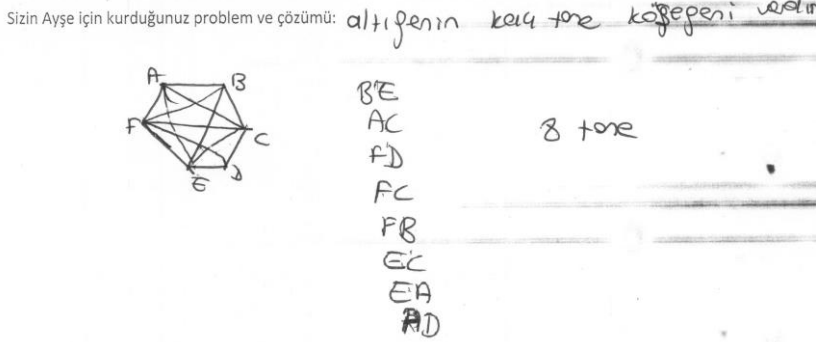 Sizin Ayşe için kurduğunuz problem ve çözümü: altıgenin kaç tane köşegeni vardır
A B
F C
E D
BE
AC
FD
8 tane
FC
FB
EC
EA
AD